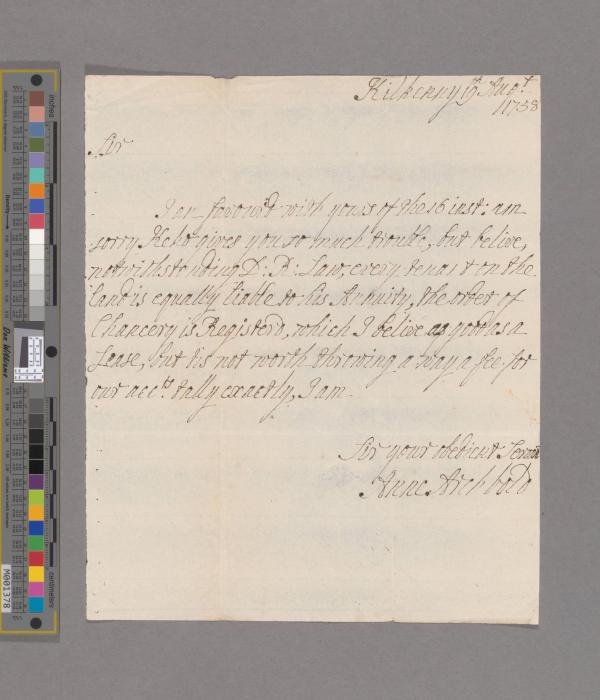 Kilkenny 19th Augt
1758
Sir
I am favour'd with yours of the 16 inst: am
sorry Keho gives you so much trouble, but belive,
notwithstanding D: R: Law, every tenant on the
land is equally liable to his Annuity, the order of
Chancery is Registerd, which I belive as good as a
Lease, but tis not worth throwing a way a fee, for
our acct. tally exactly, I am
Sir your obedient Servt
Anne Archbold
inches
Don Williams
centimeters
M001378